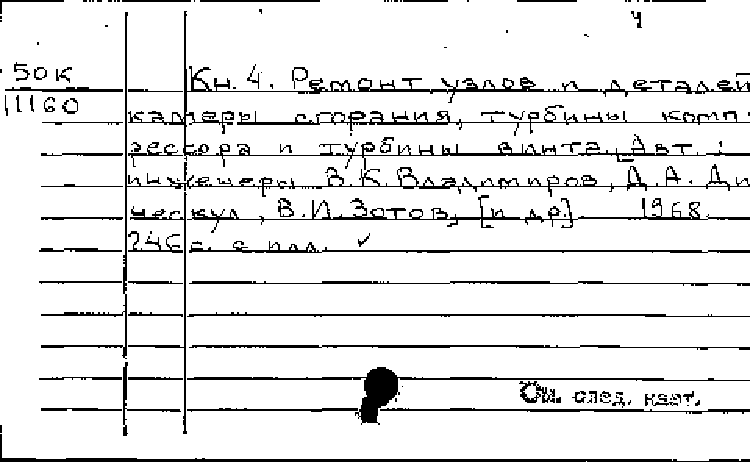 4
50К
1160
Кн. 4. Ремонт узлов и деталей
камеры сгорания, турбины комп-
рессора и турбины винта. Авт.:
инженеры В.К. Владимиров, Д.А. Ди
ческул, В.И. Зотов, [и др.] 1968.
246 с. с илл. ✓
См. след. карт.